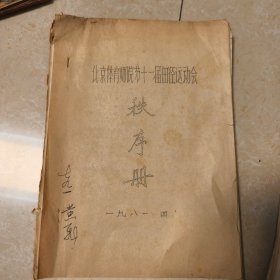 北京体育师院第十一届田径运动会
秩序册
一九八一·四